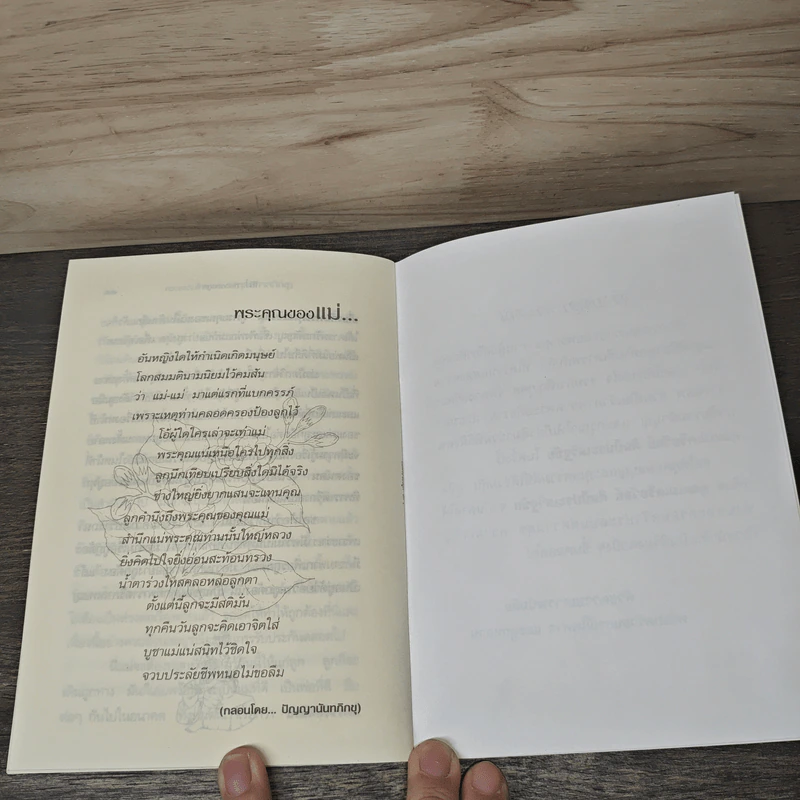 พระคุณของแม่...
อันหญิงใดให้กำเนิดเกิดมนุษย์
โลกสมมตินามนิยมไว้คมสัน
ว่า แม่-แม่ มาแต่แรกที่แบกครรภ์
เพราะเหตุท่านคลอดครองป้องลูกไว้
โอ้ผู้ใดใครเล่าจะเท่าแม่
พระคุณแน่เหนือใครไปทุกสิ่ง
ลูกนึกเทียบเปรียบสิ่งใดมิได้จริง
ช่างใหญ่ยิ่งยากแสนจะแทนคุณ
ลูกคำนึงถึงพระคุณของคุณแม่
สำนึกแน่พระคุณท่านนั้นใหญ่หลวง
ยิ่งคิดไปใจยิ่งอ่อนสะท้อนทรวง
น้ำตาร่วงไหลคลอหล่อลูกตา
ตั้งแต่นี้ลูกจะมีสติมั่น
ทุกคืนวันลูกจะคิดเอาจิตใส่
บูชาแม่แน่สนิทไว้ชิดใจ
จวบประลัยชีพหนอไม่ขอลืม
(กลอนโดย... ปัญญานันทภิกขุ)